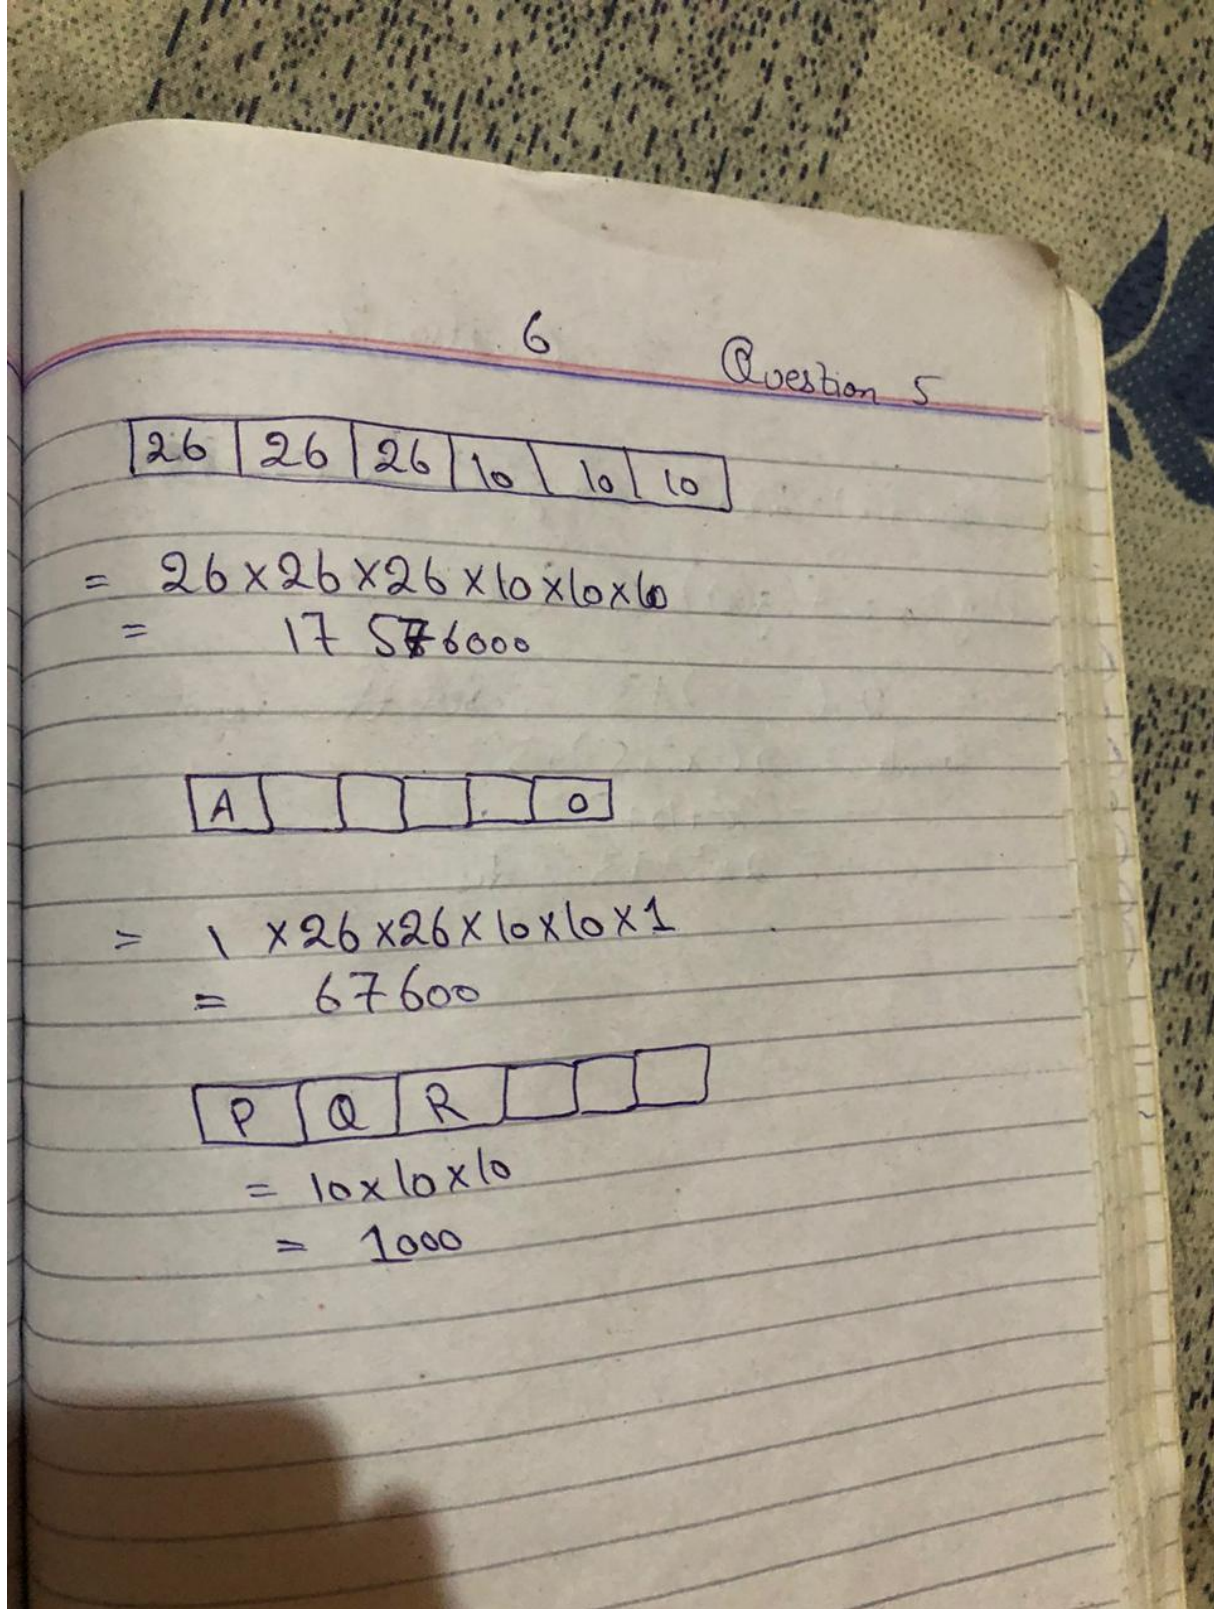 6
Question 5
26 26 26 10 10 10
= 26 × 26 × 26 × 10 × 10 × 10
= 17 576000
A 0
= 1 × 26 × 26 × 10 × 10 × 1
= 67600
P Q R
= 10 × 10 × 10
= 1000